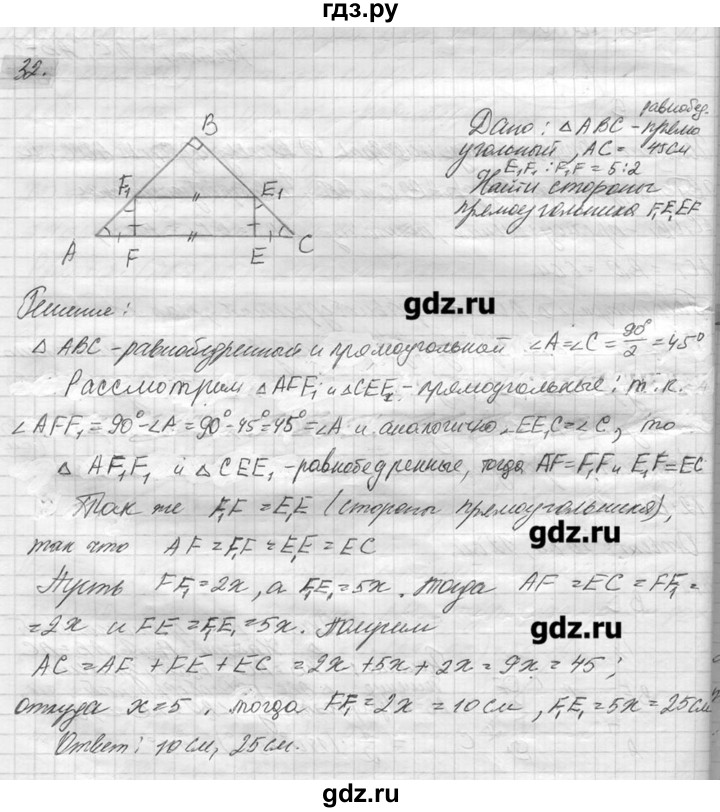 гдз.ру
32.
B
F₁
E₁
A
F
E
C
равнобед.
Дано: △ ABC - прямо
угольный, AC = 45см
E₁F₁ : F₁F = 5:2
Найти стороны
прямоугольника F₁E₁EF
Решение:
gdz.ru
△ ABC - равнобедренный и прямоугольной ∠A=∠C = 90°/2 = 45°
Рассмотрим △AFF₁ и △CEE₁ - прямоугольные; т.к.
∠AFF₁ = 90° - ∠A = 90° - 45° = 45° = ∠A и аналогично ∠EE₁C = ∠C, то
△ AF₁F₁ и △CEE₁ - равнобедренные, тогда AF = F₁F и E₁F = EC
Так же F₁F = E₁E (стороны прямоугольника),
gdz.ru
так что AF = F₁F = E₁E = EC
Пусть FF₁ = 2x, а F₁E₁ = 5x. Тогда AF = EC = FF₁ =
= 2x и FE = F₁E₁ = 5x. Получим
gdz.ru
AC = AF + FE + EC = 2x + 5x + 2x = 9x = 45;
откуда x = 5, тогда FF₁ = 2x = 10 см, F₁E₁ = 5x = 25 см
Ответ: 10 см, 25 см.
gdz.ru